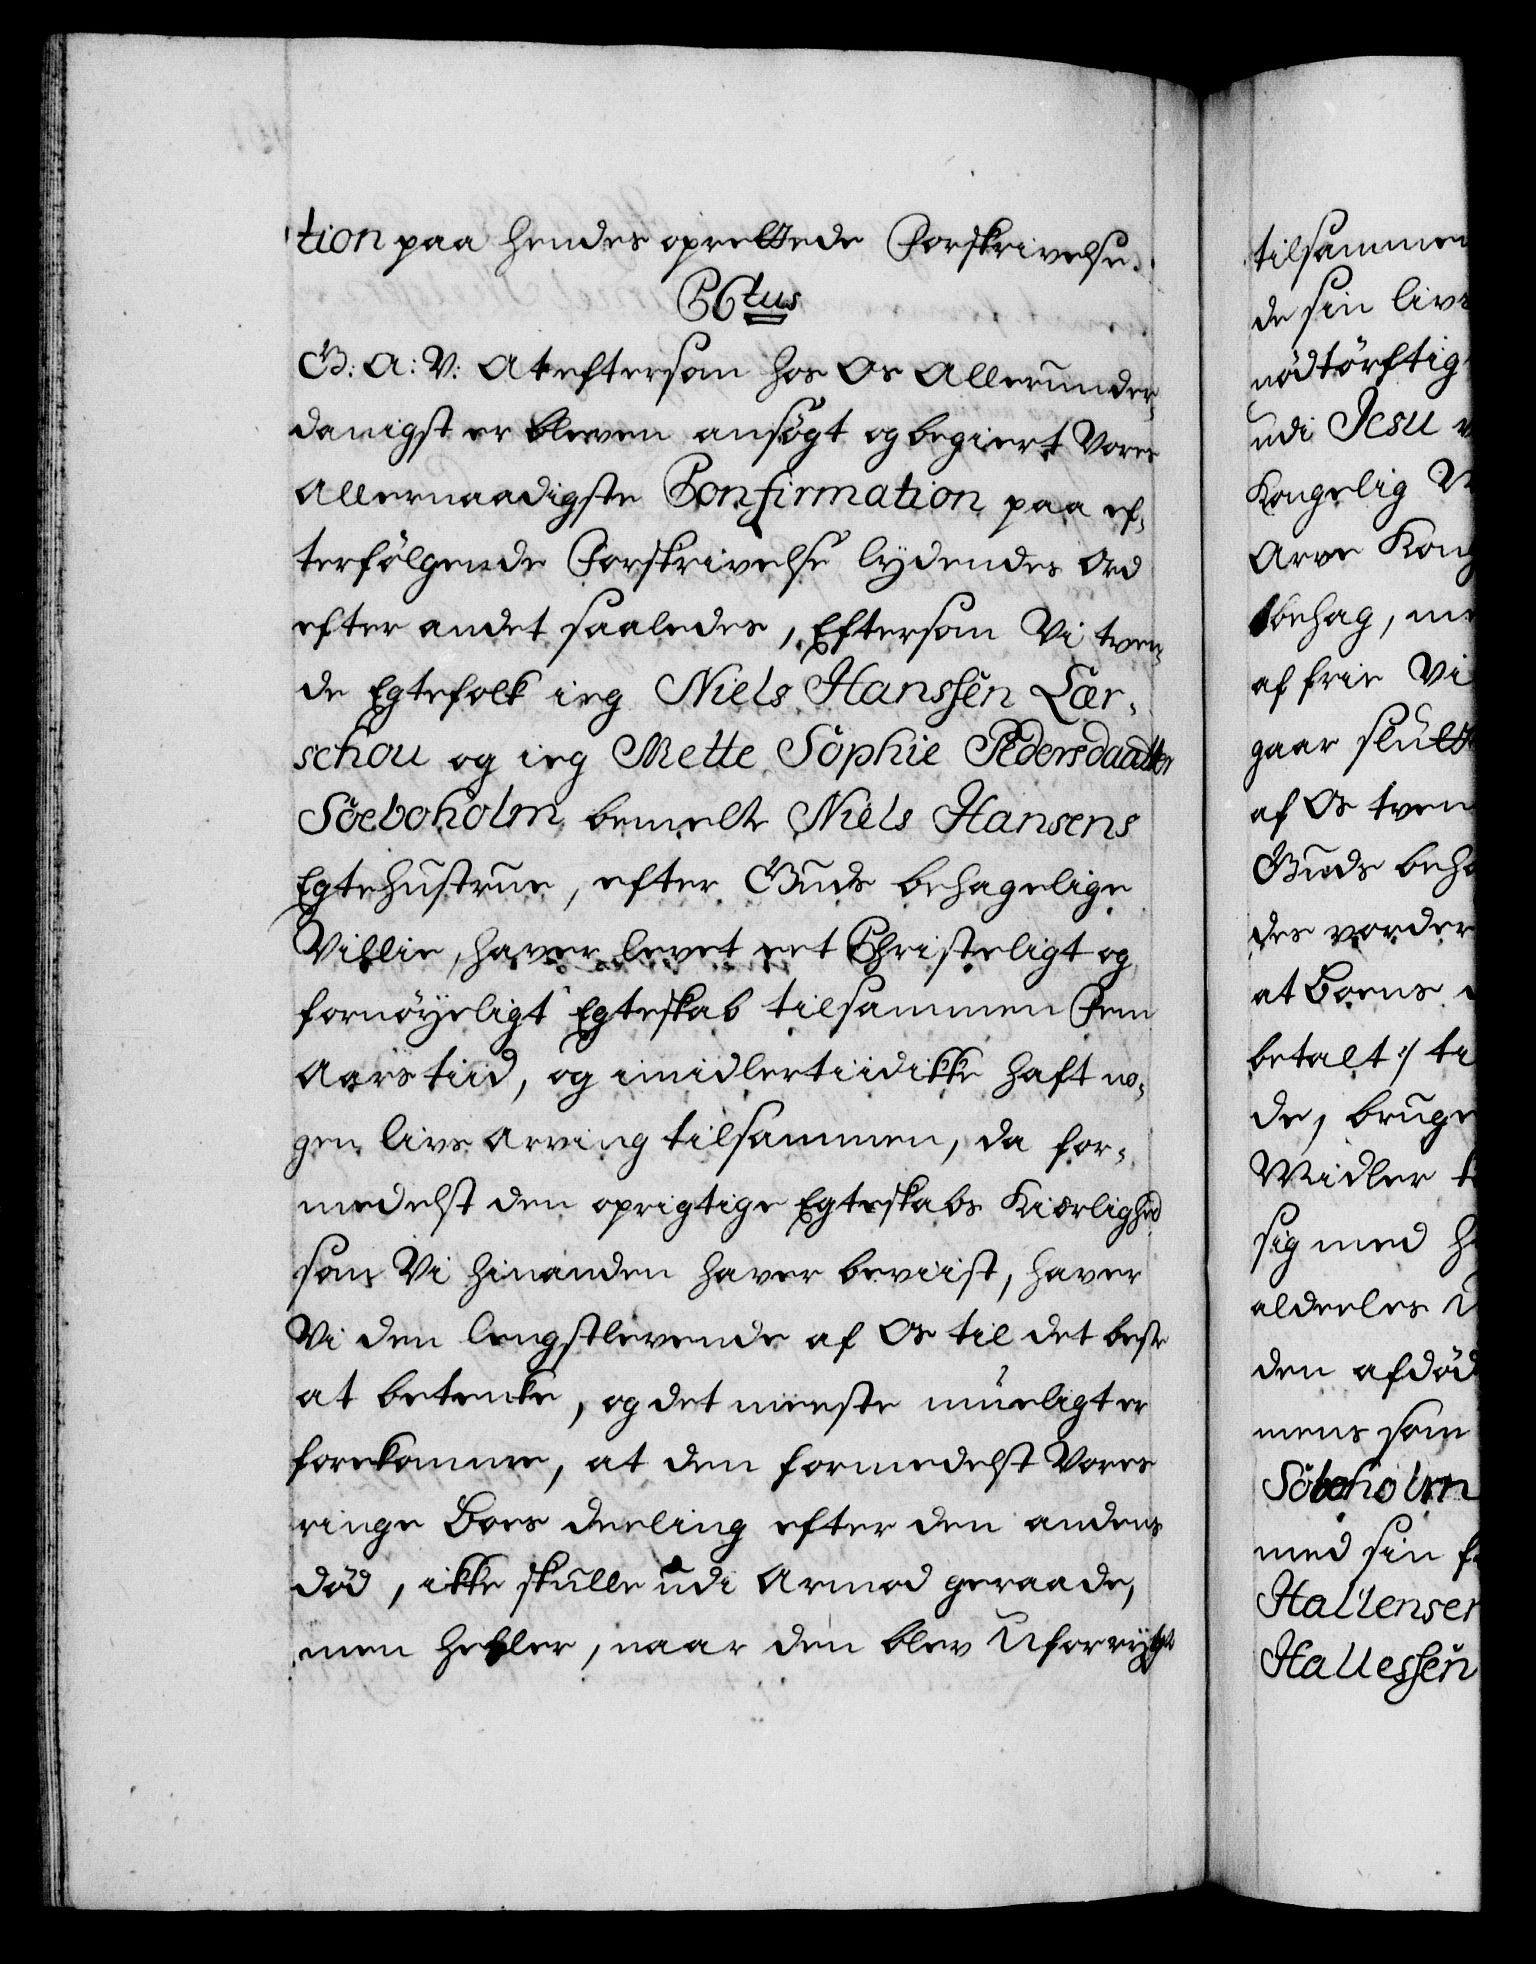 tion paa hendes oprettede Forskrivelse.
C6tus
G: A: V: At eftersom hos Os Allerunder¬
danigst er bleven ansøgt og begiert Vores
Allernaadigste Confirmation paa ef¬
terfölgende Forskrivelse lydendes Ord
efter andet saaledes, Eftersom Vi tven¬
de Egtefolk ieg Niels Hanssen Lær¬
schou og ieg Mette Sophie Pedersdaatter
Söeboholm bemelte Niels Hansens
Egtehustrue, efter Guds behagelige
Villie, haver levet eet Christeligt og
fornöyeligt Egteskab tilsammen Fem
Aars tiid, og imidlertiid ikke haft no¬
gen livs Arving tilsammen, da for¬
medelst den oprigtige Egteskabs Kiærlighed
som Vi hinanden haver beviist, haver
Vi den lengstlevende af Os til det beste
at betenke, og det meeste mueligt er
forekomme, at den formedelst Vores
ringe Boes deeling efter den andens
död, ikke skulle udi Armod geraade,
men heller, naar den blev Uforrygt
tilsammen
de sin livs
nödtörftig
udi Jesu
Kongelig
Arve Kong
behag,
af frie Vi
gaar slutte
af Os tven
Guds beha
des vorder
at Boens
betalt :/ ti
de, bruge
Midler
sig med
alderles
den afdöd
mens som
Söboholm
med sin
Hallensen
Hallessen